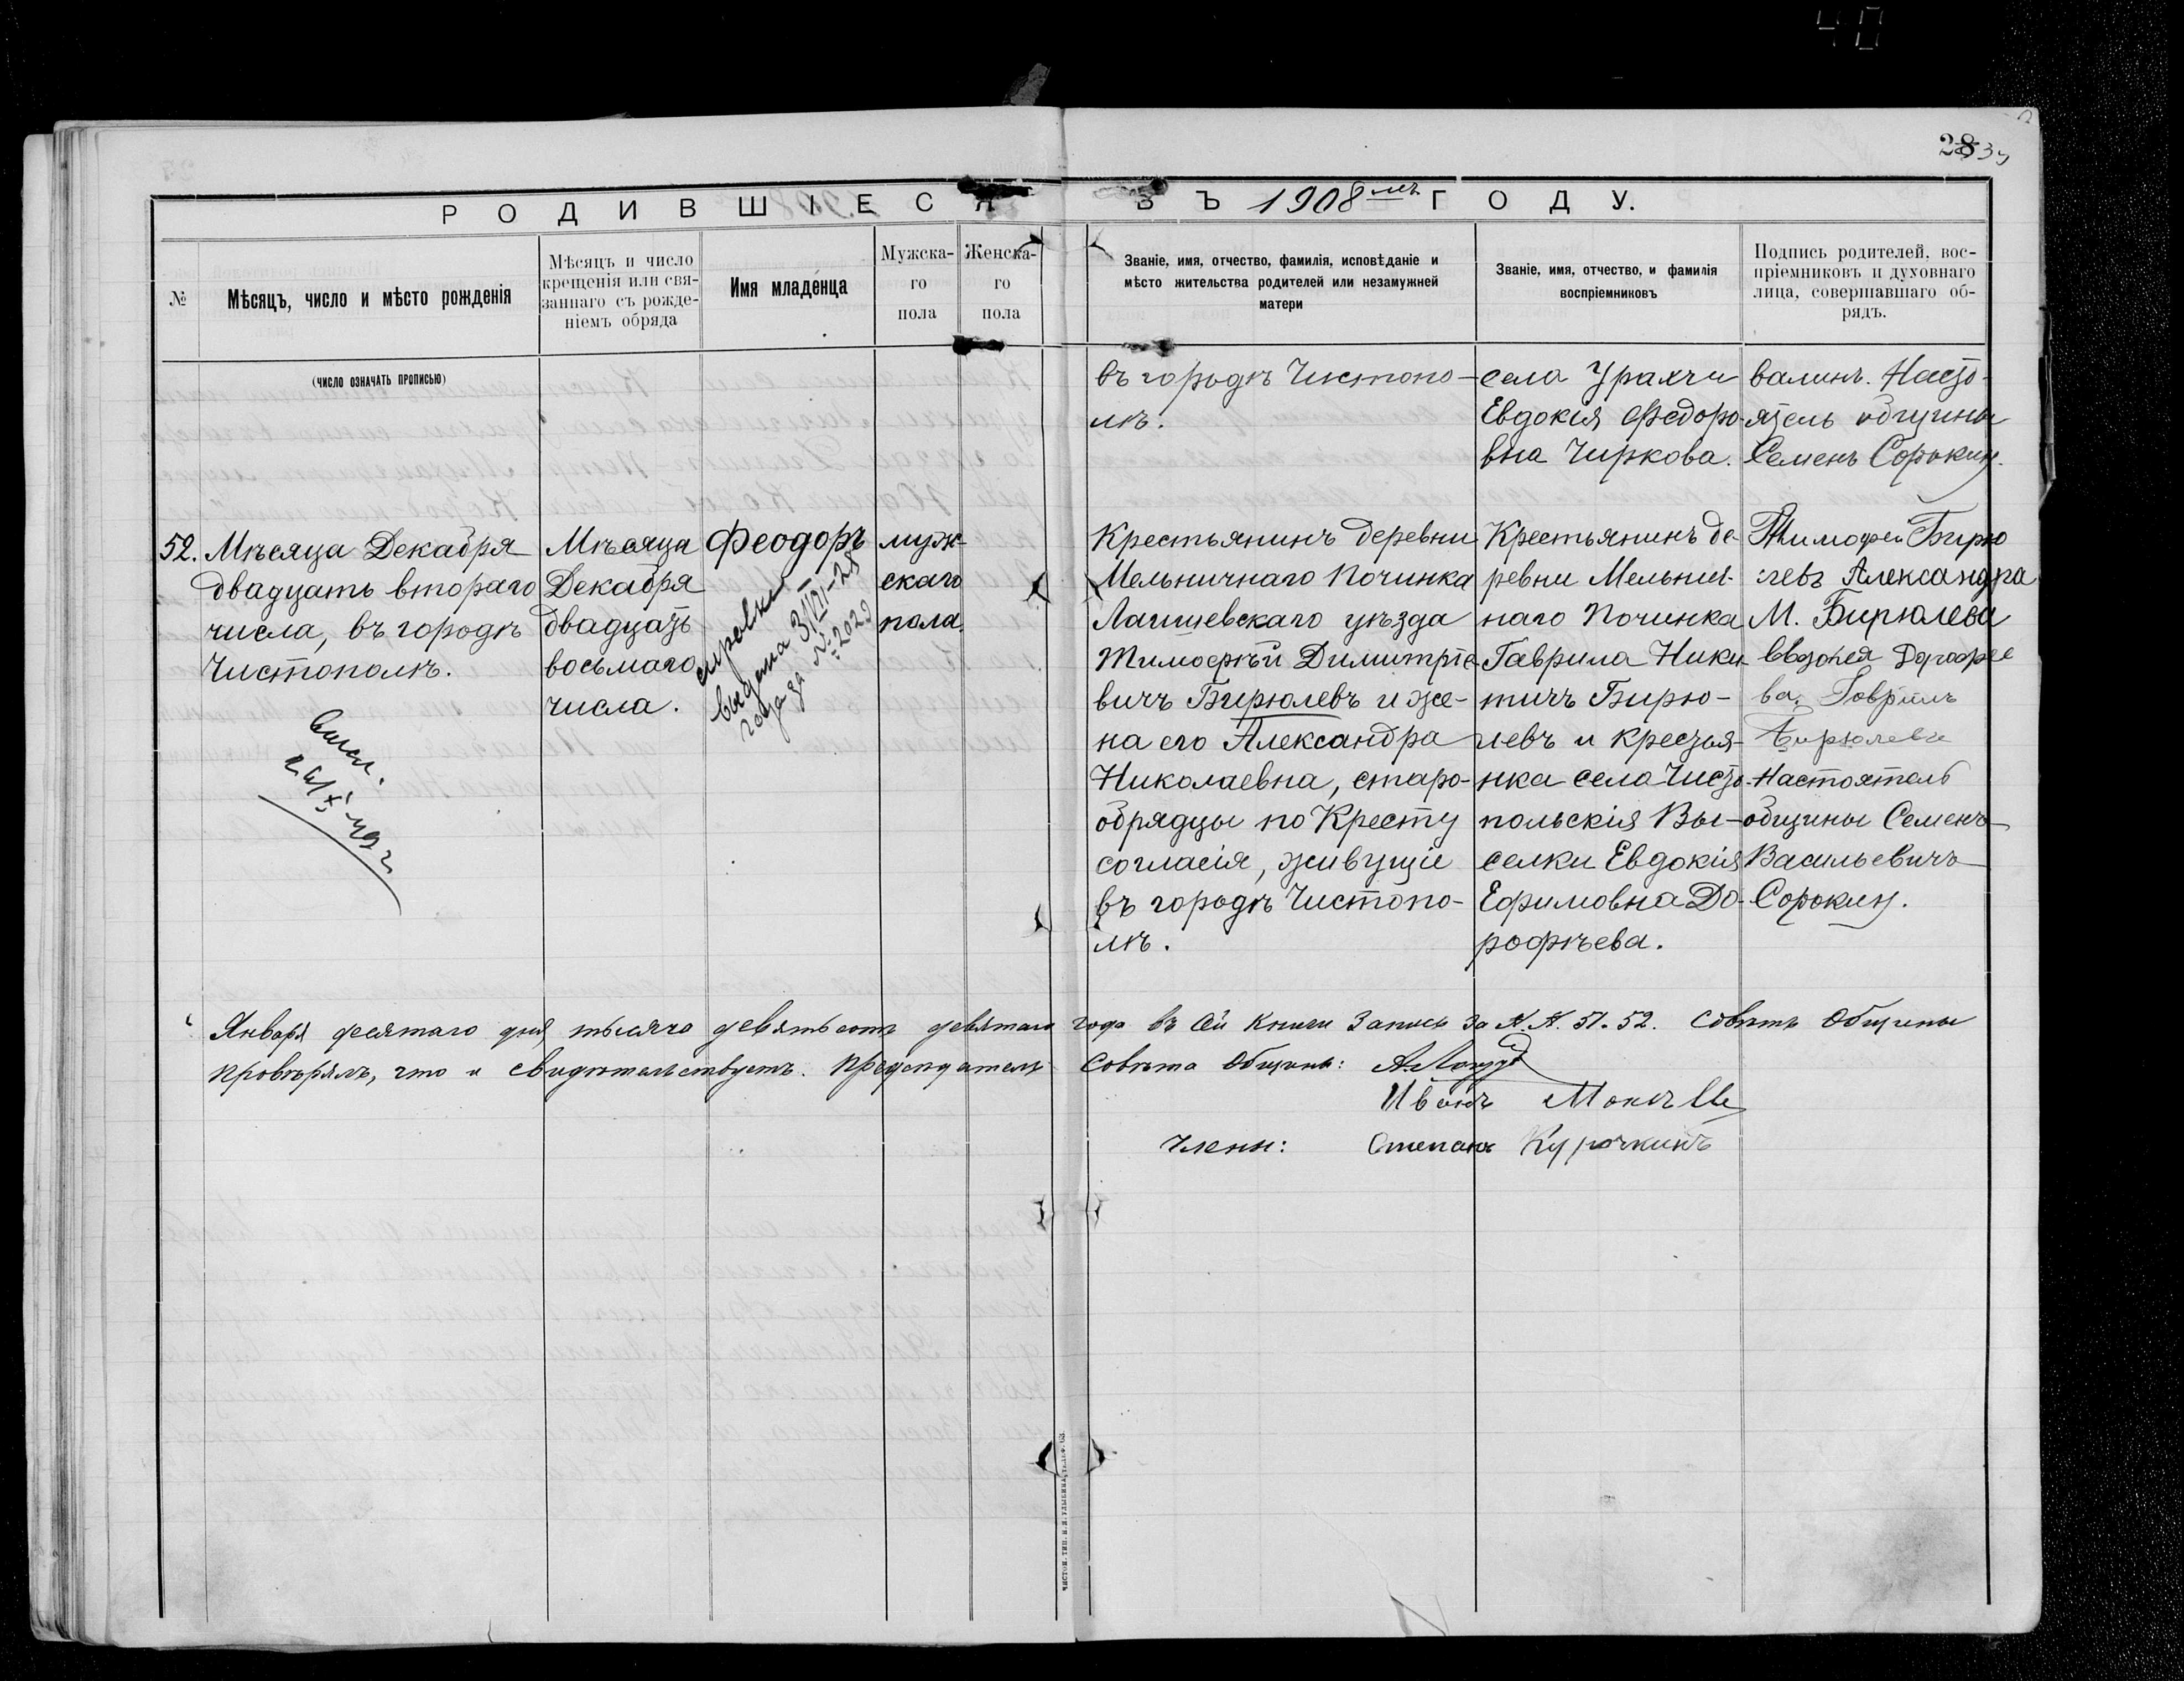 28 39
РОДИВШІЕСЯ ВЪ 1908мъ ГОДУ.
№
Мѣсяцъ, число и мѣсто рожденія
Мѣсяцъ и число
крещенія или свя-
заннаго съ рожде-
ніемъ обряда
Имя младенца
Мужска-
го
пола
Женска-
го
пола
Званіе, имя, отчество, фамилія, исповѣданіе и
мѣсто жительства родителей или незамужней
матери
Званіе, имя, отчество, и фамилія
воспріемниковъ
Подпись родителей, вос-
пріемниковъ и духовнаго
лица, совершавшаго об-
рядъ.
(число означать прописью)
въ городѣ Чистопо-
лѣ.
села Урахчи
Евдокія Федоро-
вна Чиркова.
валинъ. Насто-
ятель общины
Семенъ Сорокин.
52.
Мѣсяца Декабря
двадцать втораго
числа, въ городѣ
Чистополѣ.
Мѣсяца
Декабря
двадцать
восьмаго
числа.
Феодоръ
справка
выдана 3/III-28
года за № 2029
муж-
скаго
пола.
Крестьянинъ деревни
Мельничнаго Починка
Лаишевскаго уѣзда
Тимофѣй Димитріе-
вичъ Бирюлевъ и же-
на его Александра
Николаевна, старо-
обрядцы по Кресту
согласія, живущіе
въ городѣ Чистопо-
лѣ.
Крестьянинъ де-
ревни Мельнич-
наго Починка
Гаврила Ники-
тичъ Бирю-
левъ и крестья-
нка села Чисто-
польскія Вы-
селки Евдокія
Ефимовна До-
рофѣева.
Тимофеи Бирю
левъ Александра
М. Бирюлева
Евдокея Дорофее
ва. Гаврилъ
Бирюлевъ
Настоятель
общины Семенъ
Васильевичъ
Сорокин.
Января десятаго дня тысяча девятьсотъ девятаго года въ сей книги запись за №.№. 51-52. Совѣтъ Общины
провѣрялъ, что и свидѣтельствуетъ. Предсѣдатель Совѣта Общины:
Иванъ
Члены: Степанъ Курочкинъ